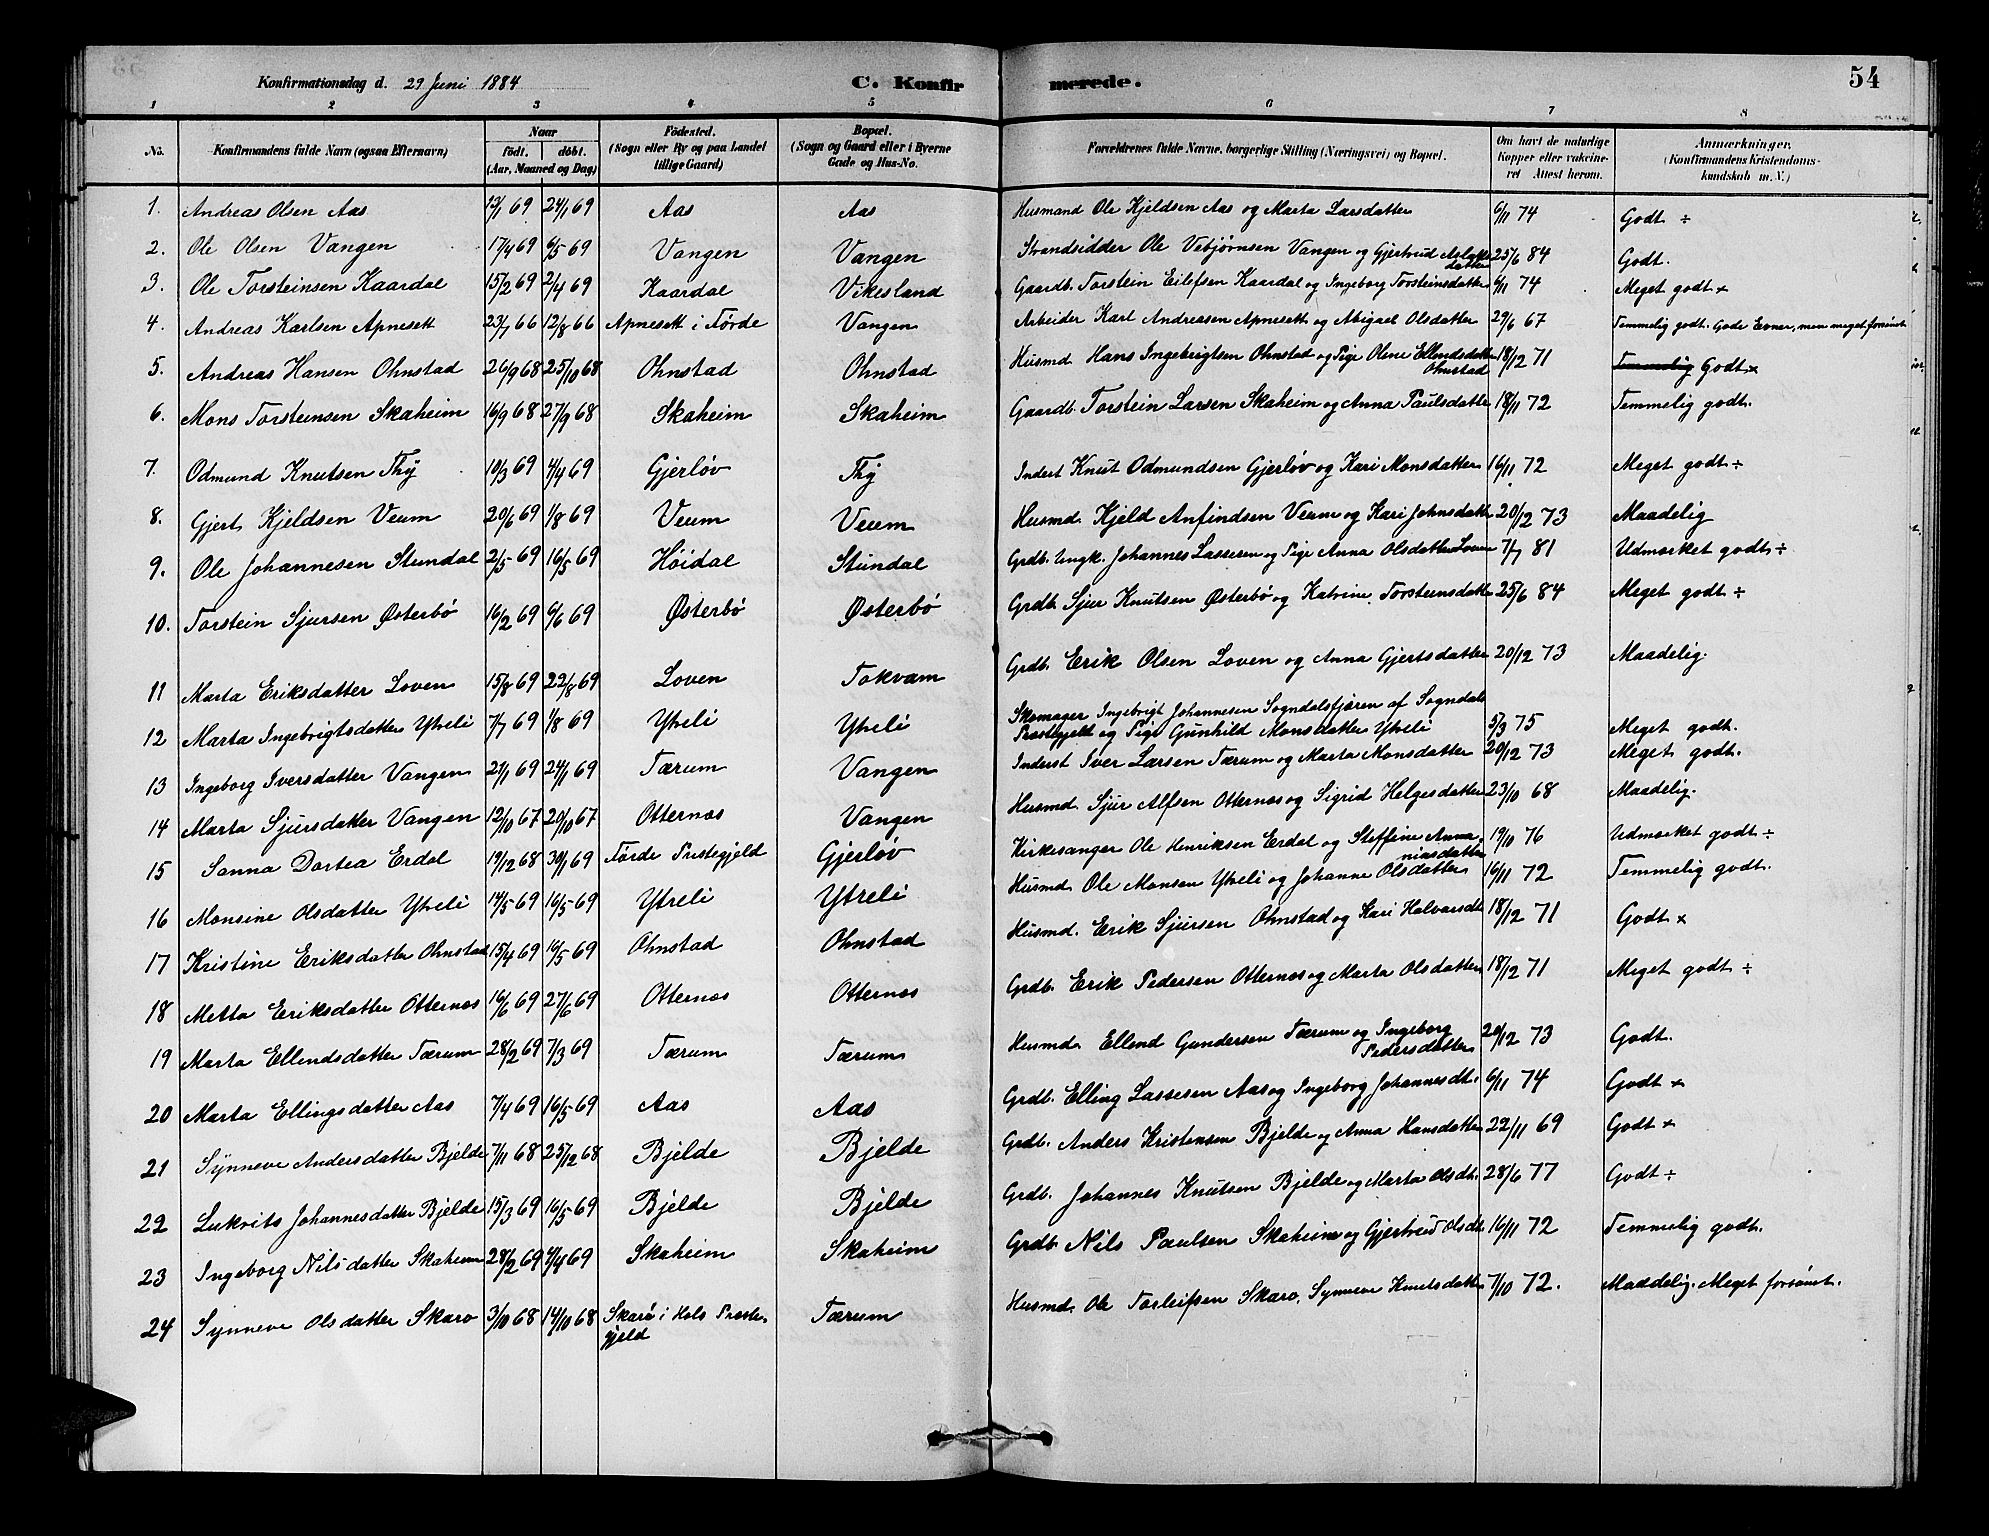 Konfirmationsdag d. 29 Juni 1884 C. Konfirmerede. 54
1 2 3 4 5 6 7 8
No. Konfirmandens fulde Navn (ogsaa Efternavn) Naar födt. döbt. (Aar, Maaned og Dag) Födested. (Sogn eller By og paa Landet tillige Gaard) Bopæl. (Sogn og Gaard eller i Byerne Gade og Hus-No. Forældrenes fulde Navne, borgerlige Stilling (Næringsvei) og Bopæl. Om havt de naturlige Kopper eller vakcineret Attest herom. Anmærkninger, (Konfirmandens Kristendomskundskab m. V.)
1. Andreas Olsen Aas 13/1 69 24/1 69 Aas Aas Husmand Ole Kjeldsen Aas og Marta Larsdatter 6/11 74 Godt ÷
2. Ole Olsen Vangen 17/4 69 6/5 69 Vangen Vangen Strandsidder Ole Vebjørnsen Vangen og Gjertrud Aslaksdatter 25/6 84 Godt.
3. Ole Torsteinsen Kaardal 15/2 69 2/4 69 Kaardal Vikesland Gaardb. Torstein Eilefsen Kaardal og Ingeborg Torsteinsdatter 6/11 74 Meget godt
4. Andreas Karlsen Apnesett 23/7 66 12/8 66 Apnesett i Førde Vangen Arbeider Karl Andreasen Apnesett og Abigael Olsdatter 29/6 67 Temmelig godt. Gode Evner, men meget forsømt
5. Andreas Hansen Ohnstad 26/9 68 25/10 68 Ohnstad Ohnstad Husmd. Hans Ingebrigtsen Ohnstad og Pige Olene Ellendsdatter Ohnstad 18/12 71 Temmelig Godt
6. Mons Torsteinsen Skaheim 16/9 68 27/9 68 Skaheim Skaheim Gaardb. Torstein Larsen Skaheim og Anna Paulsdatter 18/11 72 Temmelig godt.
7. Odmund Knutsen Thy 10/3 69 4/4 69 Gjerløv Thy Inderst Knut Odmundsen Gjerløv og Kari Monsdatter 16/11 72 Meget godt ÷
8. Gjert Kjeldsen Veum 20/6 69 1/8 69 Veum Veum Husmd. Kjeld Anfindsen Veum og Kari Johnsdatter 20/12 73 Maadelig
9. Ole Johannesen Stundal 2/5 69 16/5 69 Höidal Stundal Grdb. Ungk. Johannes Lassesen og Pige Anna Olsdatter Loven 7/7 81 Udmærket godt ÷
10. Torstein Sjursen Østerbø 16/2 69 6/6 69 Østerbø Østerbø Grdb. Sjur Knutsen Østerbø og Katrine Torsteinsdatter 25/6 84 Meget godt ÷
11 Marta Eriksdatter Loven 15/8 69 22/8 69 Loven Tokvam Grdb. Erik Olsen Loven og Anna Gjertsdatter 20/12 73 Maadelig.
12 Marta Ingebrigtsdatter Ytreli 7/7 69 1/8 69 Ytreli Ytreli Skomager Ingebrigt Johannesen Sogndalsfjøren af Sogndals Præstegjeld og Pige Gunhild Monsdatter Ytreli 5/3 75 Meget godt.
13 Ingeborg Iversdatter Vangen 21/1 69 24/1 69 Tærum Vangen Inderst Iver Larsen Tærum og Marta Monsdatter 20/12 73 Meget godt.
14 Marta Sjursdatter Vangen 12/10 67 20/10 67 Otternæs Vangen Husmd. Sjur Alfsen Otternæs og Sigrid Helgesdatter 23/10 68 Maadelig.
15 Sanna Dortea Erdal 19/12 68 30/1 69 Førde Prstegjeld Gjerløv Kirkesanger Ole Henriksen Erdal og Steffine Annaniasdatter 19/10 76 Udmærket godt ÷
16 Monsine Olsdatter Ytreli 14/5 69 16/5 69 Ytreli Ytreli Husmd. Ole Monsen Ytreli og Johanne Olsdatter 16/11 72 Temmelig godt.
17 Kristine Eriksdatter Ohnstad 15/4 69 16/5 69 Ohnstad Ohnstad Husmd. Erik Sjursen Ohnstad og Kari Halvarsdt 18/12 71 Godt
18 Metta Eriksdatter Otternæs 16/6 69 27/6 69 Otternæs Otternæs Grdb. Erik Pedersen Otternæs og Marta Olsdatter 18/12 71 Meget godt ÷
19 Marta Ellendsdatter Tærum 28/2 69 7/3 69 Tærum Tærum Husmd. Ellend Gundersen Tærum og Ingeborg Pedersdatter 20/12 73 Godt.
20 Marta Ellingsdatter Aas 7/4 69 16/5 69 Aas Aas Grdb. Elling Lassesen Aas og Ingeborg Johannesdt. 6/11 74 Godt
21 Synneve Andersdatter Bjelde 7/11 68 25/12 68 Bjelde Bjelde Grdb. Anders Kristensen Bjelde og Anna Hansdatter 22/11 69 Godt
22 Lukrits Johannesdatter Bjelde 15/3 69 16/5 69 Bjelde Bjelde Grdb. Johannes Knutsen Bjelde og Marta Olsdt. 28/6 77 Godt ÷
23 Ingeborg Nilsdatter Skaheim 28/2 69 4/4 69 Skaheim Skaheim Grdb. Nils Paulsen Skaheim og Gjertrud Olsdt 16/11 72 Temmelig godt.
24 Synneve Olsdatter Skaro 3/10 68 14/10 68 Skarø i Hols Præstegjeld Tærum Husmd. Ole Torleifsen Skaro, Synneve Knutsdatter 7/10 72. Maadelig. Meget forsömt.